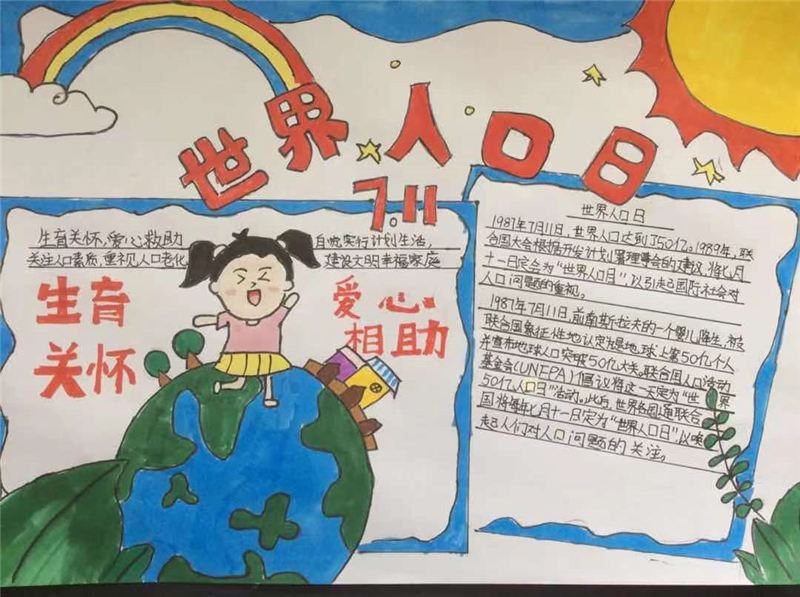 世界人口日
7.11
生育关怀,爱心救助
关注人口素质,重视人口老化
自觉实行计划生活,
建设文明幸福家庭
生育
关怀
爱心
相助
世界人口日
1987年7月11日,世界人口达到了50亿。1989年,联
合国大会根据开发计划署理事会的建议,将七月
十一日定会为“世界人口日”,以引起国际社会对
人口问题的重视。
1987年7月11日,前南斯拉夫的一个婴儿降生,被
联合国象征性地认定为是地球上第50亿个人
并宣布地球人口突破50亿大关。联合国人口活动
基金会(UNFPA)倡议将这一天定为“世界
50亿人口日”活动。此后,世界各国通联合
国将每年七月十一日定为“世界人口日”,以唤
起人们对人口问题的关注。